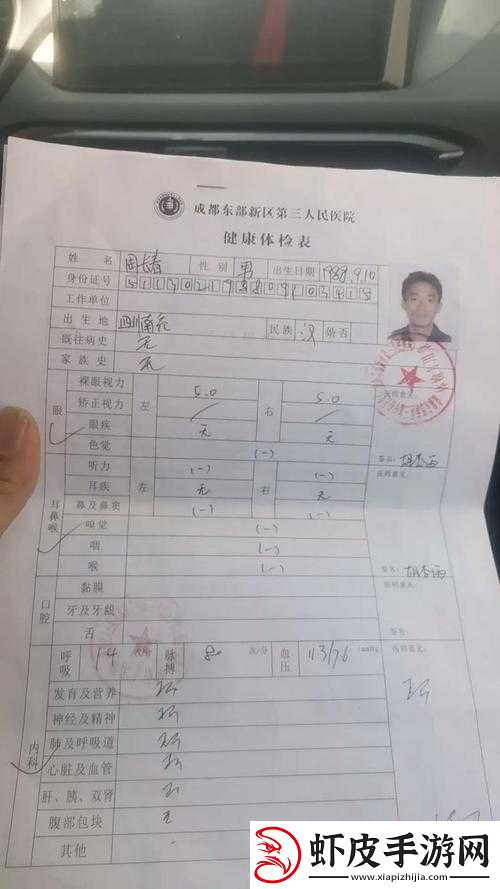 成都东部新区第三人民医院
健康体检表
姓名 周长春 性别 男 出生日期 1988.9.10
身份证号
工作单位
出生地 四川南充 民族 汉 婚否
既往病史 无
家族史 无
医师意见:
眼 裸眼视力 左 5.0 右 5.0
矫正视力 / /
眼疾 无 无
色觉 (-) 签名:
耳鼻喉 听力 左 (-) 右 (-) 医师意见:
耳疾 无 无
鼻及鼻窦 (-) (-)
嗅觉 (-)
咽 (-)
喉 (-) 签名:
口腔 黏膜 医师意见:
牙及牙龈
舌 签名:
内科 呼吸 14 次/分 脉搏 80 次/分 血压 113/76 mmHg 医师意见:
发育及营养
神经及精神
肺及呼吸道
心脏及血管
肝、胰、双肾
腹部包块 无
其他
虾皮手游网
www.xiapizhijia.com